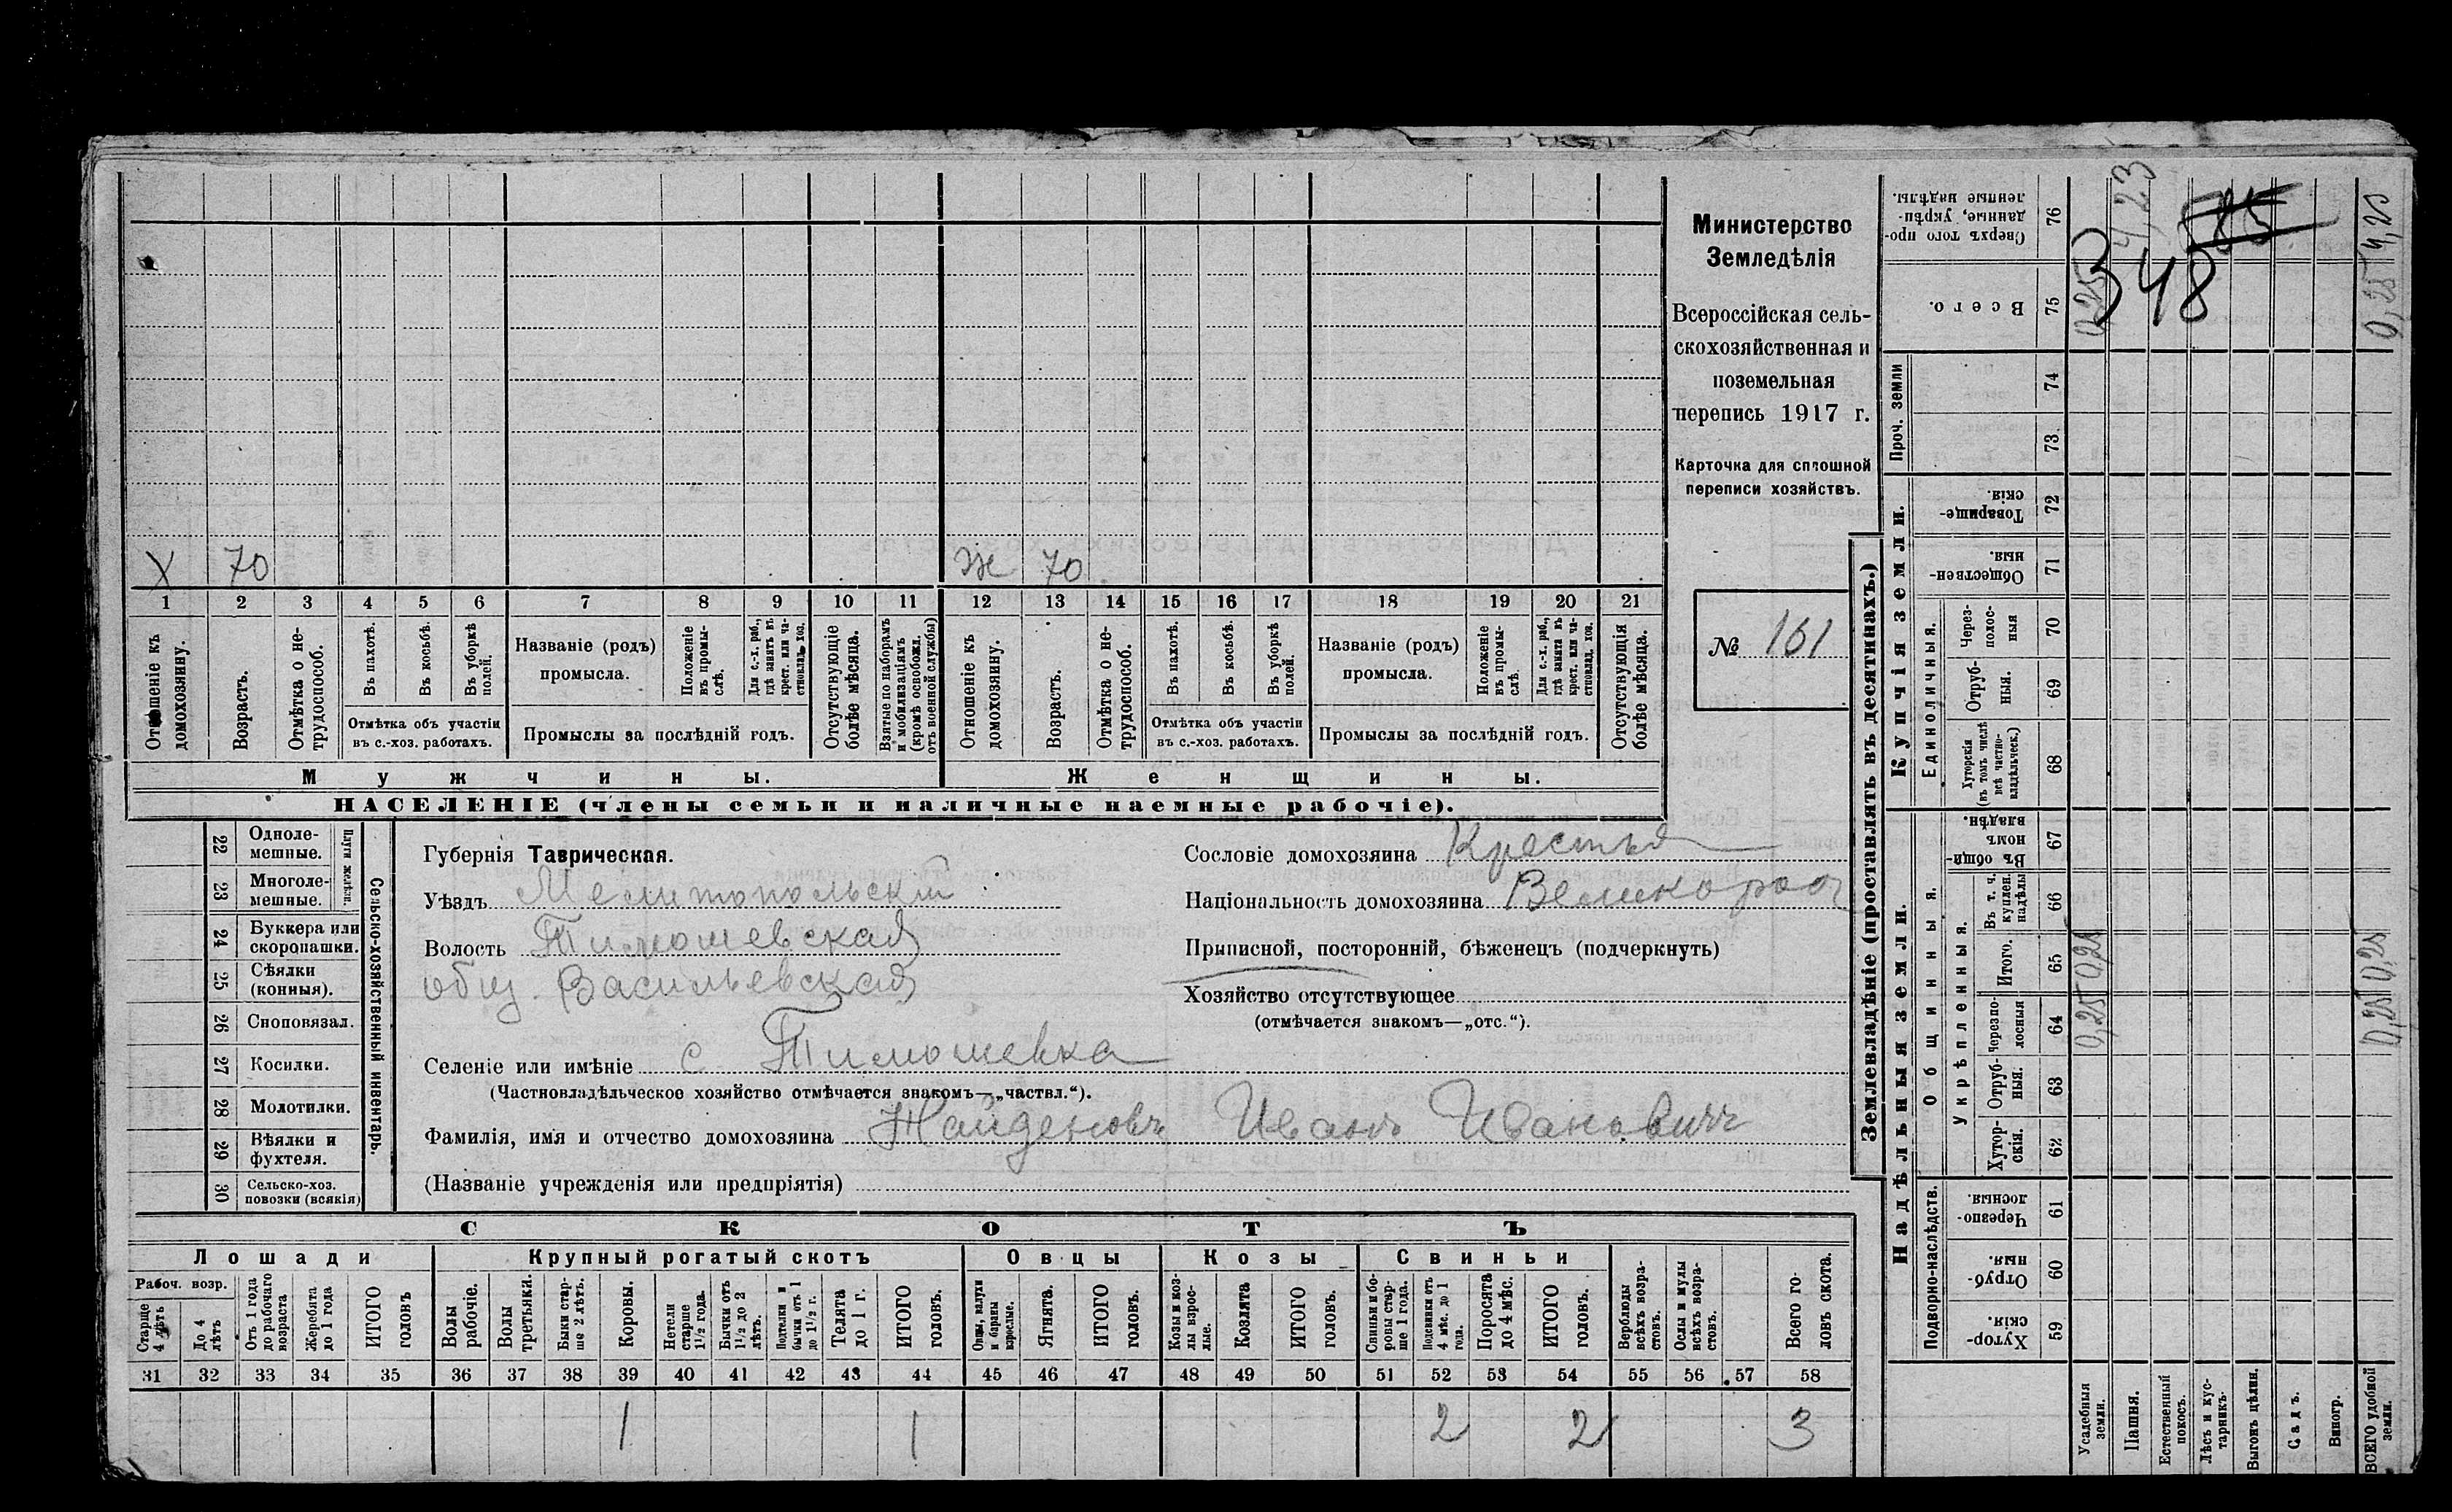 Министерство
Земледѣлія
Всероссійская сель-
скохозяйственная и
поземельная
перепись 1917 г.
Карточка для сплошной
переписи хозяйствъ.
№ 161
Х 70
Ж 70
1 2 3 4 5 6 7 8 9 10 11 12 13 14 15 16 17 18 19 20 21
Отношеніе къ домохозяину.
Возрастъ.
Отмѣтка о не-трудоспособ.
Въ пахотѣ.
Въ косьбѣ.
Въ уборкѣ полей.
Отмѣтка объ участіи
въ с.-хоз. работахъ.
Названіе (родъ)
промысла.
Положеніе въ промы-слѣ.
Для с.-х. раб., гдѣ занятъ въ крест. или ча-стновлад. хоз.
Промыслы за послѣдній годъ.
Отсутствующіе болѣе мѣсяца.
Взятые по наборамъ и мобилизаціямъ (кромѣ освобожд. отъ военной службы)
Отношеніе къ домохозяину.
Возрастъ.
Отмѣтка о не-трудоспособ.
Въ пахотѣ.
Въ косьбѣ.
Въ уборкѣ полей.
Отмѣтка объ участіи
въ с.-хоз. работахъ.
Названіе (родъ)
промысла.
Положеніе въ промы-слѣ.
Для с.-х. раб., гдѣ занята въ крест. или ча-стновлад. хоз.
Промыслы за послѣдній годъ.
Отсутствующія болѣе мѣсяца.
Мужчины.
Женщины.
НАСЕЛЕНІЕ (члены семьи и наличные наемные рабочіе).
22 Одноле-мешные.
23 Многоле-мешные.
Плуги желѣзн.
24 Буккера или скоропашки.
25 Сѣялки (конныя).
26 Сноповязал.
27 Косилки.
28 Молотилки.
29 Вѣялки и фухтеля.
30 Сельско-хоз. повозки (всякія)
Сельско-хозяйственный инвентарь.
Губернія Таврическая.
Уѣздъ Мелитопольский
Волость Тимошевская
общ. Васильевская
Селеніе или имѣніе с. Тимошевка
(Частновладѣльческое хозяйство отмѣчается знакомъ—„частвл.“).
Фамилія, имя и отчество домохозяина Найденовъ Иванъ Ивановичъ
(Названіе учрежденія или предпріятія)
Сословіе домохозяина Крестья
Національность домохозяина Великоросс
Приписной, посторонній, бѣженецъ (подчеркнуть)
Хозяйство отсутствующее
(отмѣчается знакомъ—„отс.“).
СКОТЪ
Лошади
Крупный рогатый скотъ
Овцы
Козы
Свиньи
Рабоч. возр.
Старше 4 лѣтъ
До 4 лѣтъ
Отъ 1 года до рабочаго возраста
Жеребята до 1 года
ИТОГО головъ
Волы рабочіе.
Волы третьяки.
Быки стар-ше 2 лѣтъ.
Коровы.
Нетели старше 1½ года.
Бычки отъ 1½ до 2 лѣтъ.
Подтелки и бычки отъ 1 до 1½ г.
Телята до 1 г.
ИТОГО головъ.
Овцы, валухи и бараны взрослые.
Ягнята.
ИТОГО головъ.
Козы и коз-лы взрос-лые.
Козлята
ИТОГО головъ.
Свиньи и бо-ровы стар-ше 1 года.
Подсвинки отъ 4 мѣс. до 1 года.
Поросята до 4 мѣс.
ИТОГО головъ.
Верблюды всѣхъ возра-стовъ.
Ослы и мулы всѣхъ возра-стовъ.
Всего го-ловъ скота.
31 32 33 34 35 36 37 38 39 40 41 42 43 44 45 46 47 48 49 50 51 52 53 54 55 56 57 58
1 1 2 2 3
Землевладѣніе (проставлять въ десятинахъ.)
Надѣльныя земли.
Купчія земли.
Проч. земли
Подворно-наслѣдств.
Общинныя.
Укрѣпленныя.
Единоличныя.
Сверхъ того про-данные, укрѣп-ленные надѣлы. 76
Всего. 75
74
73
Товарище-скія. 72
Обществен-ныя. 71
Через-полос-ныя 70
Отруб-ныя. 69
Хуторскія (въ томъ числѣ всѣ частно-владѣльческ.) 68
Въ общи-номъ владѣн. 67
Въ т. ч. куплен. надѣлы 66
Итого. 65
Черезпо-лосныя 64
Отруб-ныя. 63
Хутор-скія. 62
Черезпо-лосныя. 61
Отруб-ныя. 60
Хутор-скія. 59
Усадебныя земли.
Пашня.
Естественный покосъ.
Лѣсъ и кус-тарникъ.
Выгонъ цѣлин.
Садъ.
Виногр.
ВСЕГО удобной земли.
4,23
585
348
0,25
0,25 4,23
0,25 0,25
0,25 0,25